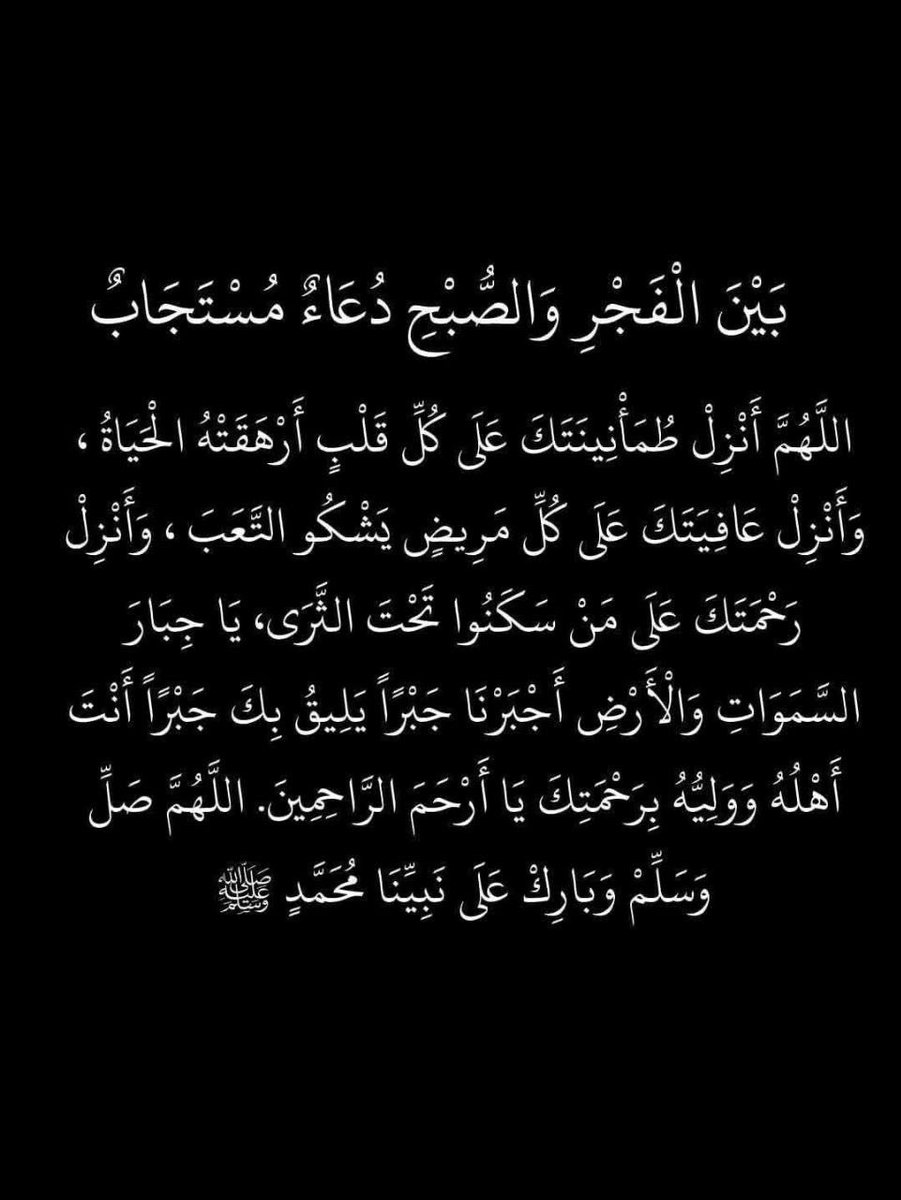 بَيْنَ الْفَجْرِ وَالصُّبْحِ دُعَاءٌ مُسْتَجَابٌ
اللَّهُمَّ أَنْزِلْ طُمَأْنِينَتَكَ عَلَى كُلِّ قَلْبٍ أَرْهَقَتْهُ الْحَيَاةُ ،
وَأَنْزِلْ عَافِيَتَكَ عَلَى كُلِّ مَرِيضٍ يَشْكُو التَّعَبَ ، وَأَنْزِلْ
رَحْمَتَكَ عَلَى مَنْ سَكَنُوا تَحْتَ الثَّرَى، يَا جِبَارَ
السَّمَوَاتِ وَالْأَرْضِ أَجْبَرْنَا جَبْرًا يَلِيقُ بِكَ جَبْرًا أَنْتَ
أَهْلُهُ وَوَلِيُّهُ بِرَحْمَتِكَ يَا أَرْحَمَ الرَّاحِمِينَ. اللَّهُمَّ صَلِّ
وَسَلِّمْ وَبَارِكْ عَلَى نَبِيِّنَا مُحَمَّدٍ ﷺ